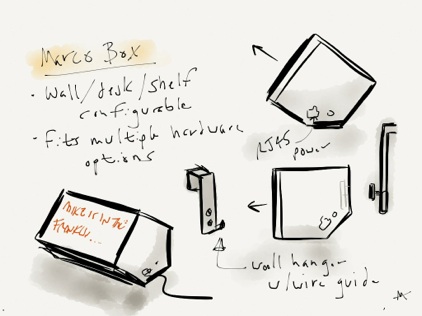 Marco Box
· Wall/desk/shelf
configurable
· Fits multiple hardware
options
RJ45
power
wall hanger
w/wire guide